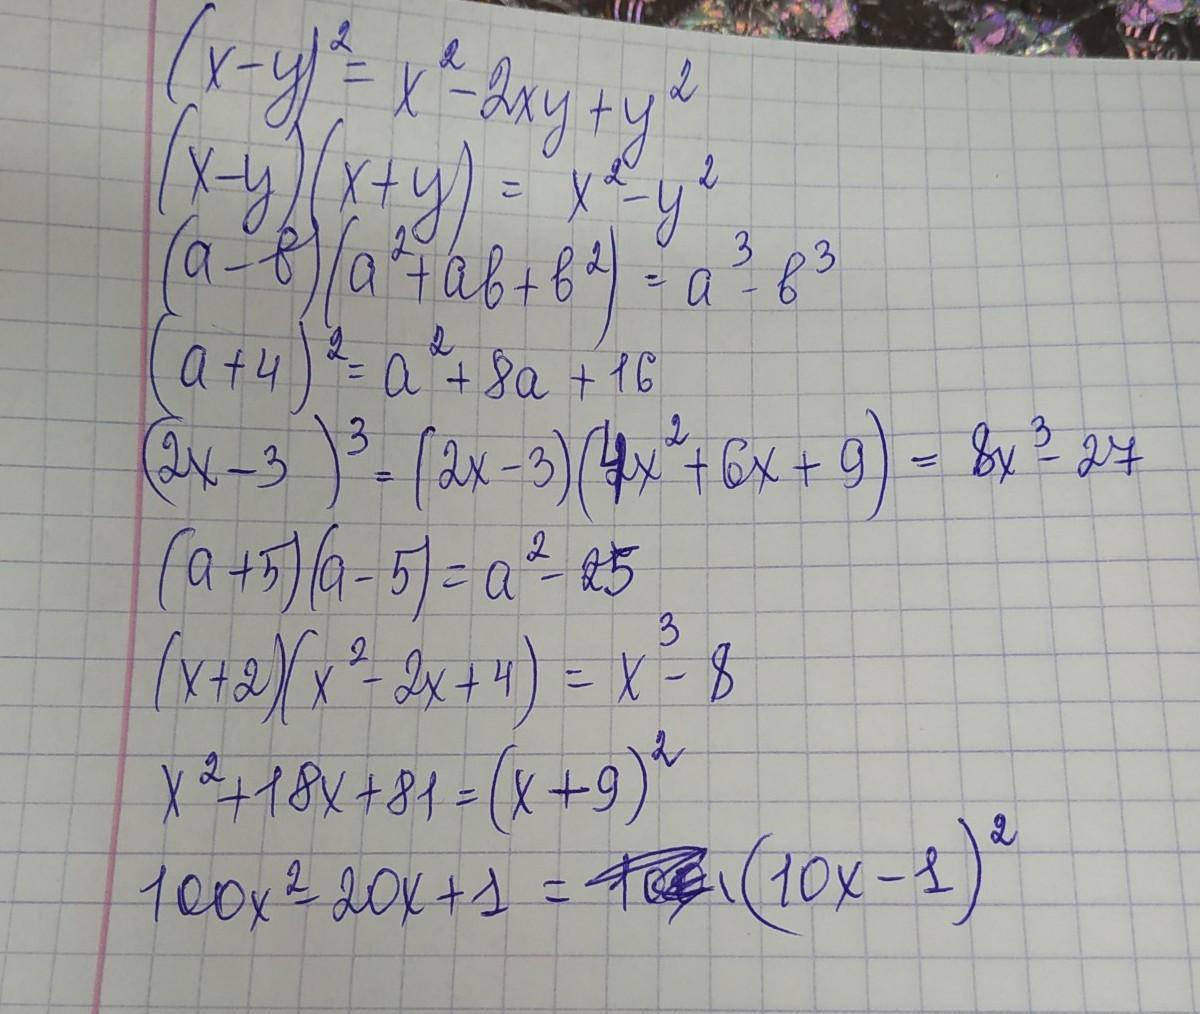 (x-y)² = x² - 2xy + y²
(x-y)(x+y) = x² - y²
(a-в)(a² + aв + в²) = a³ - в³
(a+4)² = a² + 8a + 16
(2x-3)³ = (2x-3)(4x² + 6x + 9) = 8x³ - 27
(a+5)(a-5) = a² - 25
(x+2)(x² - 2x + 4) = x³ - 8
x² + 18x + 81 = (x+9)²
100x² - 20x + 1 = (10x-1)²